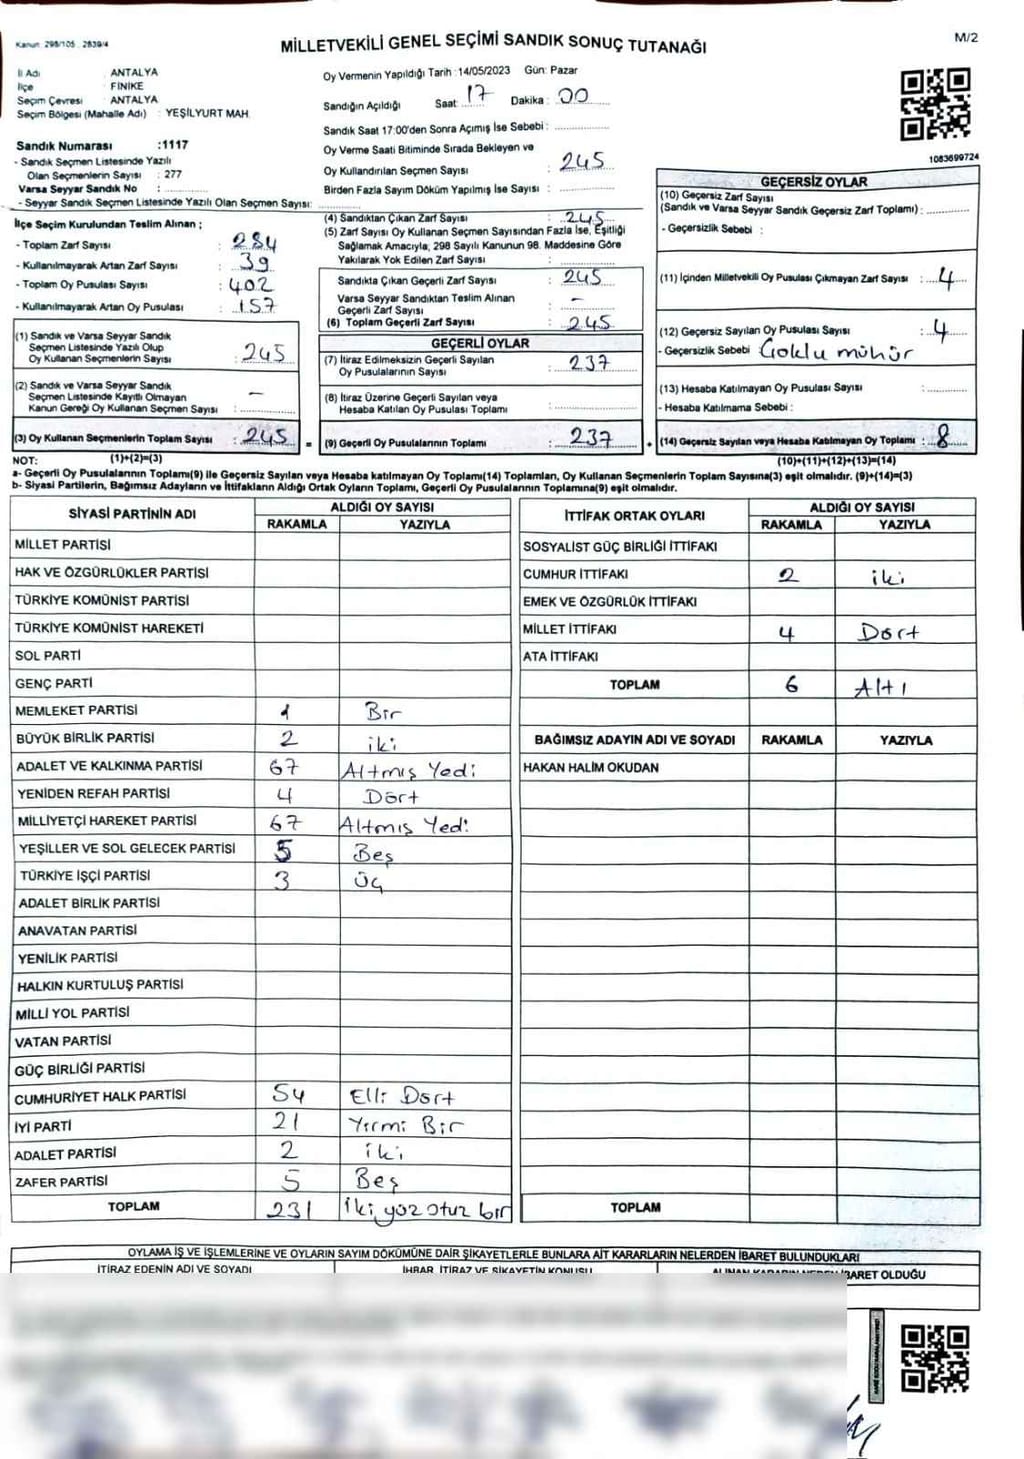 Kanun: 298/105 . 2839/4
MİLLETVEKİLİ GENEL SEÇİMİ SANDIK SONUÇ TUTANAĞI
M/2
İl Adı : ANTALYA
İlçe : FİNİKE
Seçim Çevresi : ANTALYA
Seçim Bölgesi (Mahalle Adı) : YEŞİLYURT MAH.
Sandık Numarası :1117
- Sandık Seçmen Listesinde Yazılı
Olan Seçmenlerin Sayısı : 277
Varsa Seyyar Sandık No :
- Seyyar Sandık Seçmen Listesinde Yazılı Olan Seçmen Sayısı:
Oy Vermenin Yapıldığı Tarih :14/05/2023 Gün: Pazar
Sandığın Açıldığı Saat: 17 Dakika : 00
Sandık Saat 17:00'den Sonra Açımış İse Sebebi :
Oy Verme Saati Bitiminde Sırada Bekleyen ve
Oy Kullandırılan Seçmen Sayısı : 245
Birden Fazla Sayım Döküm Yapılmış İse Sayısı :
1083699724
İlçe Seçim Kurulundan Teslim Alınan ;
- Toplam Zarf Sayısı : 284
- Kullanılmayarak Artan Zarf Sayısı : 39
- Toplam Oy Pusulası Sayısı : 402
- Kullanılmayarak Artan Oy Pusulası : 157
(1) Sandık ve Varsa Seyyar Sandık
Seçmen Listesinde Yazılı Olup
Oy Kullanan Seçmenlerin Sayısı : 245
(2) Sandık ve Varsa Seyyar Sandık
Seçmen Listesinde Kayıtlı Olmayan
Kanun Gereği Oy Kullanan Seçmen Sayısı : -
(3) Oy Kullanan Seçmenlerin Toplam Sayısı : 245 =
(4) Sandıktan Çıkan Zarf Sayısı : 245
(5) Zarf Sayısı Oy Kullanan Seçmen Sayısından Fazla İse, Eşitliği
Sağlamak Amacıyla; 298 Sayılı Kanunun 98. Maddesine Göre
Yakılarak Yok Edilen Zarf Sayısı :
Sandıkta Çıkan Geçerli Zarf Sayısı : 245
Varsa Seyyar Sandıktan Teslim Alınan
Geçerli Zarf Sayısı : -
(6) Toplam Geçerli Zarf Sayısı : 245
GEÇERLİ OYLAR
(7) İtiraz Edilmeksizin Geçerli Sayılan
Oy Pusulalarının Sayısı : 237
(8) İtiraz Üzerine Geçerli Sayılan veya
Hesaba Katılan Oy Pusulası Toplamı :
(9) Geçerli Oy Pusulalarının Toplamı : 237 +
GEÇERSİZ OYLAR
(10) Geçersiz Zarf Sayısı
(Sandık ve Varsa Seyyar Sandık Geçersiz Zarf Toplamı) :
- Geçersizlik Sebebi :
(11) İçinden Milletvekili Oy Pusulası Çıkmayan Zarf Sayısı : 4
(12) Geçersiz Sayılan Oy Pusulası Sayısı : 4
- Geçersizlik Sebebi Çoklu mühür
(13) Hesaba Katılmayan Oy Pusulası Sayısı :
- Hesaba Katılmama Sebebi :
(14) Geçersiz Sayılan veya Hesaba Katılmayan Oy Toplamı : 8
NOT: (1)+(2)=(3) (10)+(11)+(12)+(13)=(14)
a- Geçerli Oy Pusulalarının Toplamı(9) ile Geçersiz Sayılan veya Hesaba katılmayan Oy Toplamı(14) Toplamları, Oy Kullanan Seçmenlerin Toplam Sayısına(3) eşit olmalıdır. (9)+(14)=(3)
b- Siyasi Partilerin, Bağımsız Adayların ve İttifakların Aldığı Ortak Oyların Toplamı, Geçerli Oy Pusulalarının Toplamına(9) eşit olmalıdır.
SİYASİ PARTİNİN ADI ALDIĞI OY SAYISI
RAKAMLA YAZIYLA
MİLLET PARTİSİ
HAK VE ÖZGÜRLÜKLER PARTİSİ
TÜRKİYE KOMÜNİST PARTİSİ
TÜRKİYE KOMÜNİST HAREKETİ
SOL PARTİ
GENÇ PARTİ
MEMLEKET PARTİSİ 1 Bir
BÜYÜK BİRLİK PARTİSİ 2 iki
ADALET VE KALKINMA PARTİSİ 67 Altmış Yedi
YENİDEN REFAH PARTİSİ 4 Dört
MİLLİYETÇİ HAREKET PARTİSİ 67 Altmış Yedi
YEŞİLLER VE SOL GELECEK PARTİSİ 5 Beş
TÜRKİYE İŞÇİ PARTİSİ 3 Üç
ADALET BİRLİK PARTİSİ
ANAVATAN PARTİSİ
YENİLİK PARTİSİ
HALKIN KURTULUŞ PARTİSİ
MİLLİ YOL PARTİSİ
VATAN PARTİSİ
GÜÇ BİRLİĞİ PARTİSİ
CUMHURİYET HALK PARTİSİ 54 Elli Dört
İYİ PARTİ 21 Yirmi Bir
ADALET PARTİSİ 2 iki
ZAFER PARTİSİ 5 Beş
TOPLAM 231 iki yüz otuz bir
İTTİFAK ORTAK OYLARI ALDIĞI OY SAYISI
RAKAMLA YAZIYLA
SOSYALİST GÜÇ BİRLİĞİ İTTİFAKI
CUMHUR İTTİFAKI 2 iki
EMEK VE ÖZGÜRLÜK İTTİFAKI
MİLLET İTTİFAKI 4 Dört
ATA İTTİFAKI
TOPLAM 6 Altı
BAĞIMSIZ ADAYIN ADI VE SOYADI RAKAMLA YAZIYLA
HAKAN HALİM OKUDAN
TOPLAM
OYLAMA İŞ VE İŞLEMLERİNE VE OYLARIN SAYIM DÖKÜMÜNE DAİR ŞİKAYETLERLE BUNLARA AİT KARARLARIN NELERDEN İBARET BULUNDUKLARI
İTİRAZ EDENİN ADI VE SOYADI İHBAR, İTİRAZ VE ŞİKAYETİN KONUSU ALINAN KARARIN NEDEN İBARET OLDUĞU